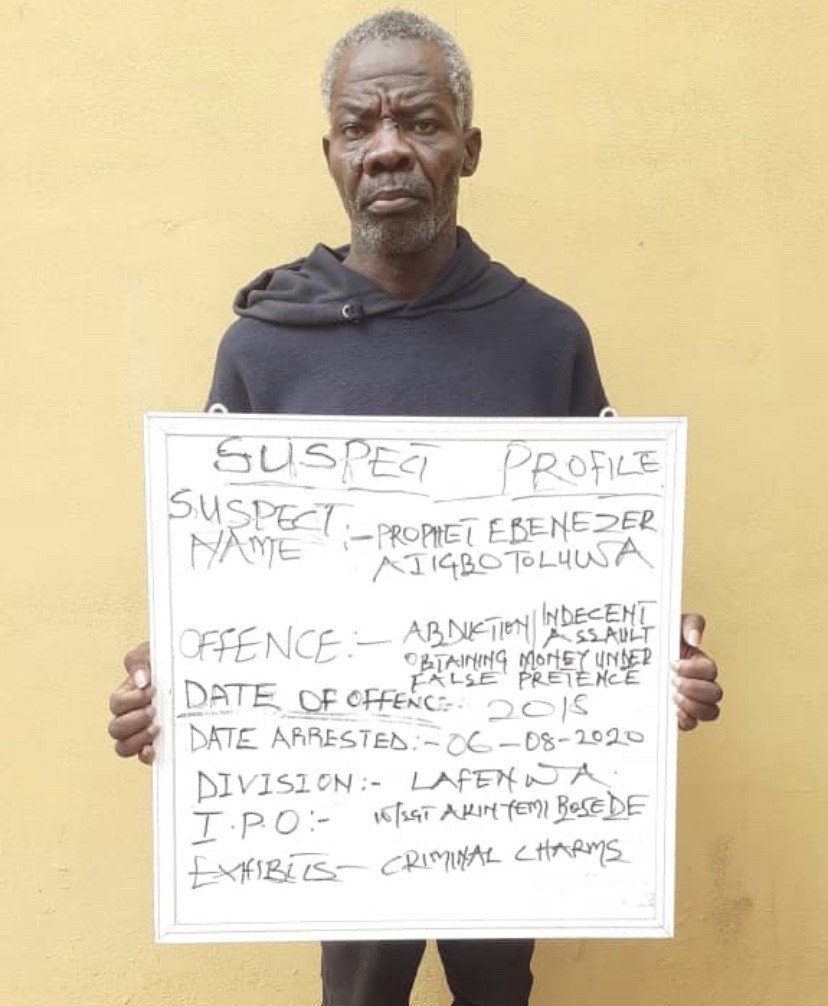 SUSPECT PROFILE
SUSPECT NAME :- PROPHET EBENEZER
AJIGBOTOLUWA
OFFENCE:- ABDUCTION/INDECENT
ASSAULT
OBTAINING MONEY UNDER
FALSE PRETENCE
DATE OF OFFENCE:- 2015
DATE ARRESTED:- 06-08-2020
DIVISION:- LAFENWA.
I.P.O:- W/SGT AKINYEMI BOSEDE
EXHIBITS- CRIMINAL CHARMS